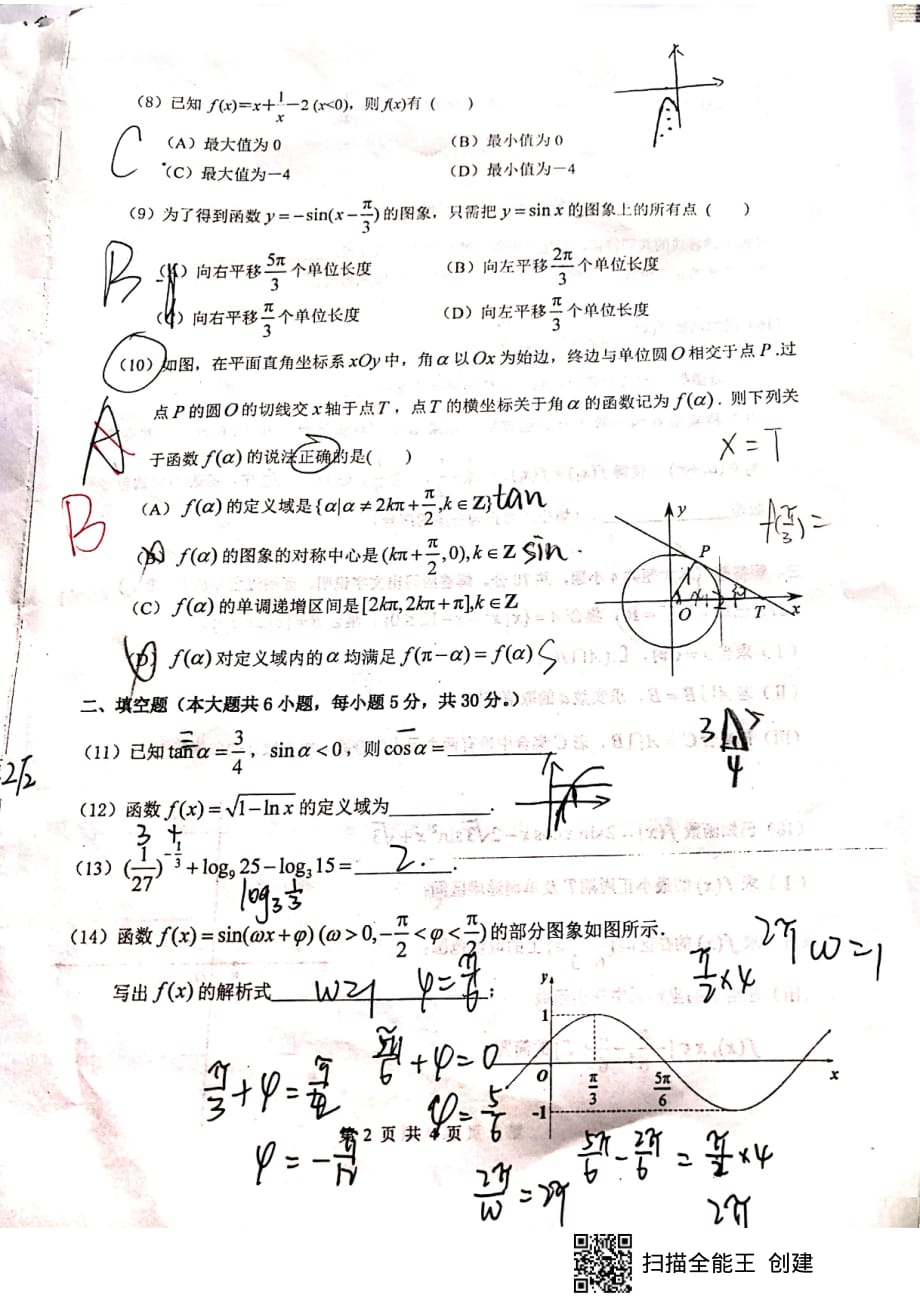 (8) 已知 f(x)=x+1/x-2 (x<0)，则 f(x)有 (    )
C
(A) 最大值为 0    (B) 最小值为 0
(C) 最大值为－4    (D) 最小值为－4
(9) 为了得到函数 y=-sin(x-π/3)的图象，只需把 y=sin x 的图象上的所有点 (    )
B
(A) 向右平移 5π/3 个单位长度    (B) 向左平移 2π/3 个单位长度
(C) 向右平移 π/3 个单位长度    (D) 向左平移 π/3 个单位长度
(10) 如图，在平面直角坐标系 xOy 中，角 α 以 Ox 为始边，终边与单位圆 O 相交于点 P .过
点 P 的圆 O 的切线交 x 轴于点 T ，点 T 的横坐标关于角 α 的函数记为 f(α) . 则下列关
A
x=T
于函数 f(α) 的说法正确的是(    )
B
(A) f(α) 的定义域是 {α|α≠2kπ+π/2,k∈Z} tan
f(π/3)=
(B) f(α) 的图象的对称中心是 (kπ+π/2,0),k∈Z sin
(C) f(α) 的单调递增区间是 [2kπ,2kπ+π],k∈Z
(D) f(α) 对定义域内的 α 均满足 f(π-α)=f(α)
y
P
O
T
x
二、填空题（本大题共 6 小题，每小题 5 分，共 30 分。）
(11) 已知 tanα=3/4，sinα<0，则 cosα=
3
5
4
2√2
(12) 函数 f(x)=√(1-ln x) 的定义域为        .
3 +
(13) (1/27)^(-1/3)+log₉25-log₃15= 2 .
log₃ 1/3
(14) 函数 f(x)=sin(ωx+φ) (ω>0,-π/2<φ<π/2)的部分图象如图所示.
π/2×4
2π
W=1
写出 f(x) 的解析式 W=1 φ=π/6 ;
y
1
O
π/3
5π/6
x
-1
π/3+φ=π/2
5π/6+φ=0
φ=5/6
第 2 页 共 4 页
φ=-π/12
2π/W=2π
5π/6-2π/6=π/2×4
2π
扫描全能王 创建